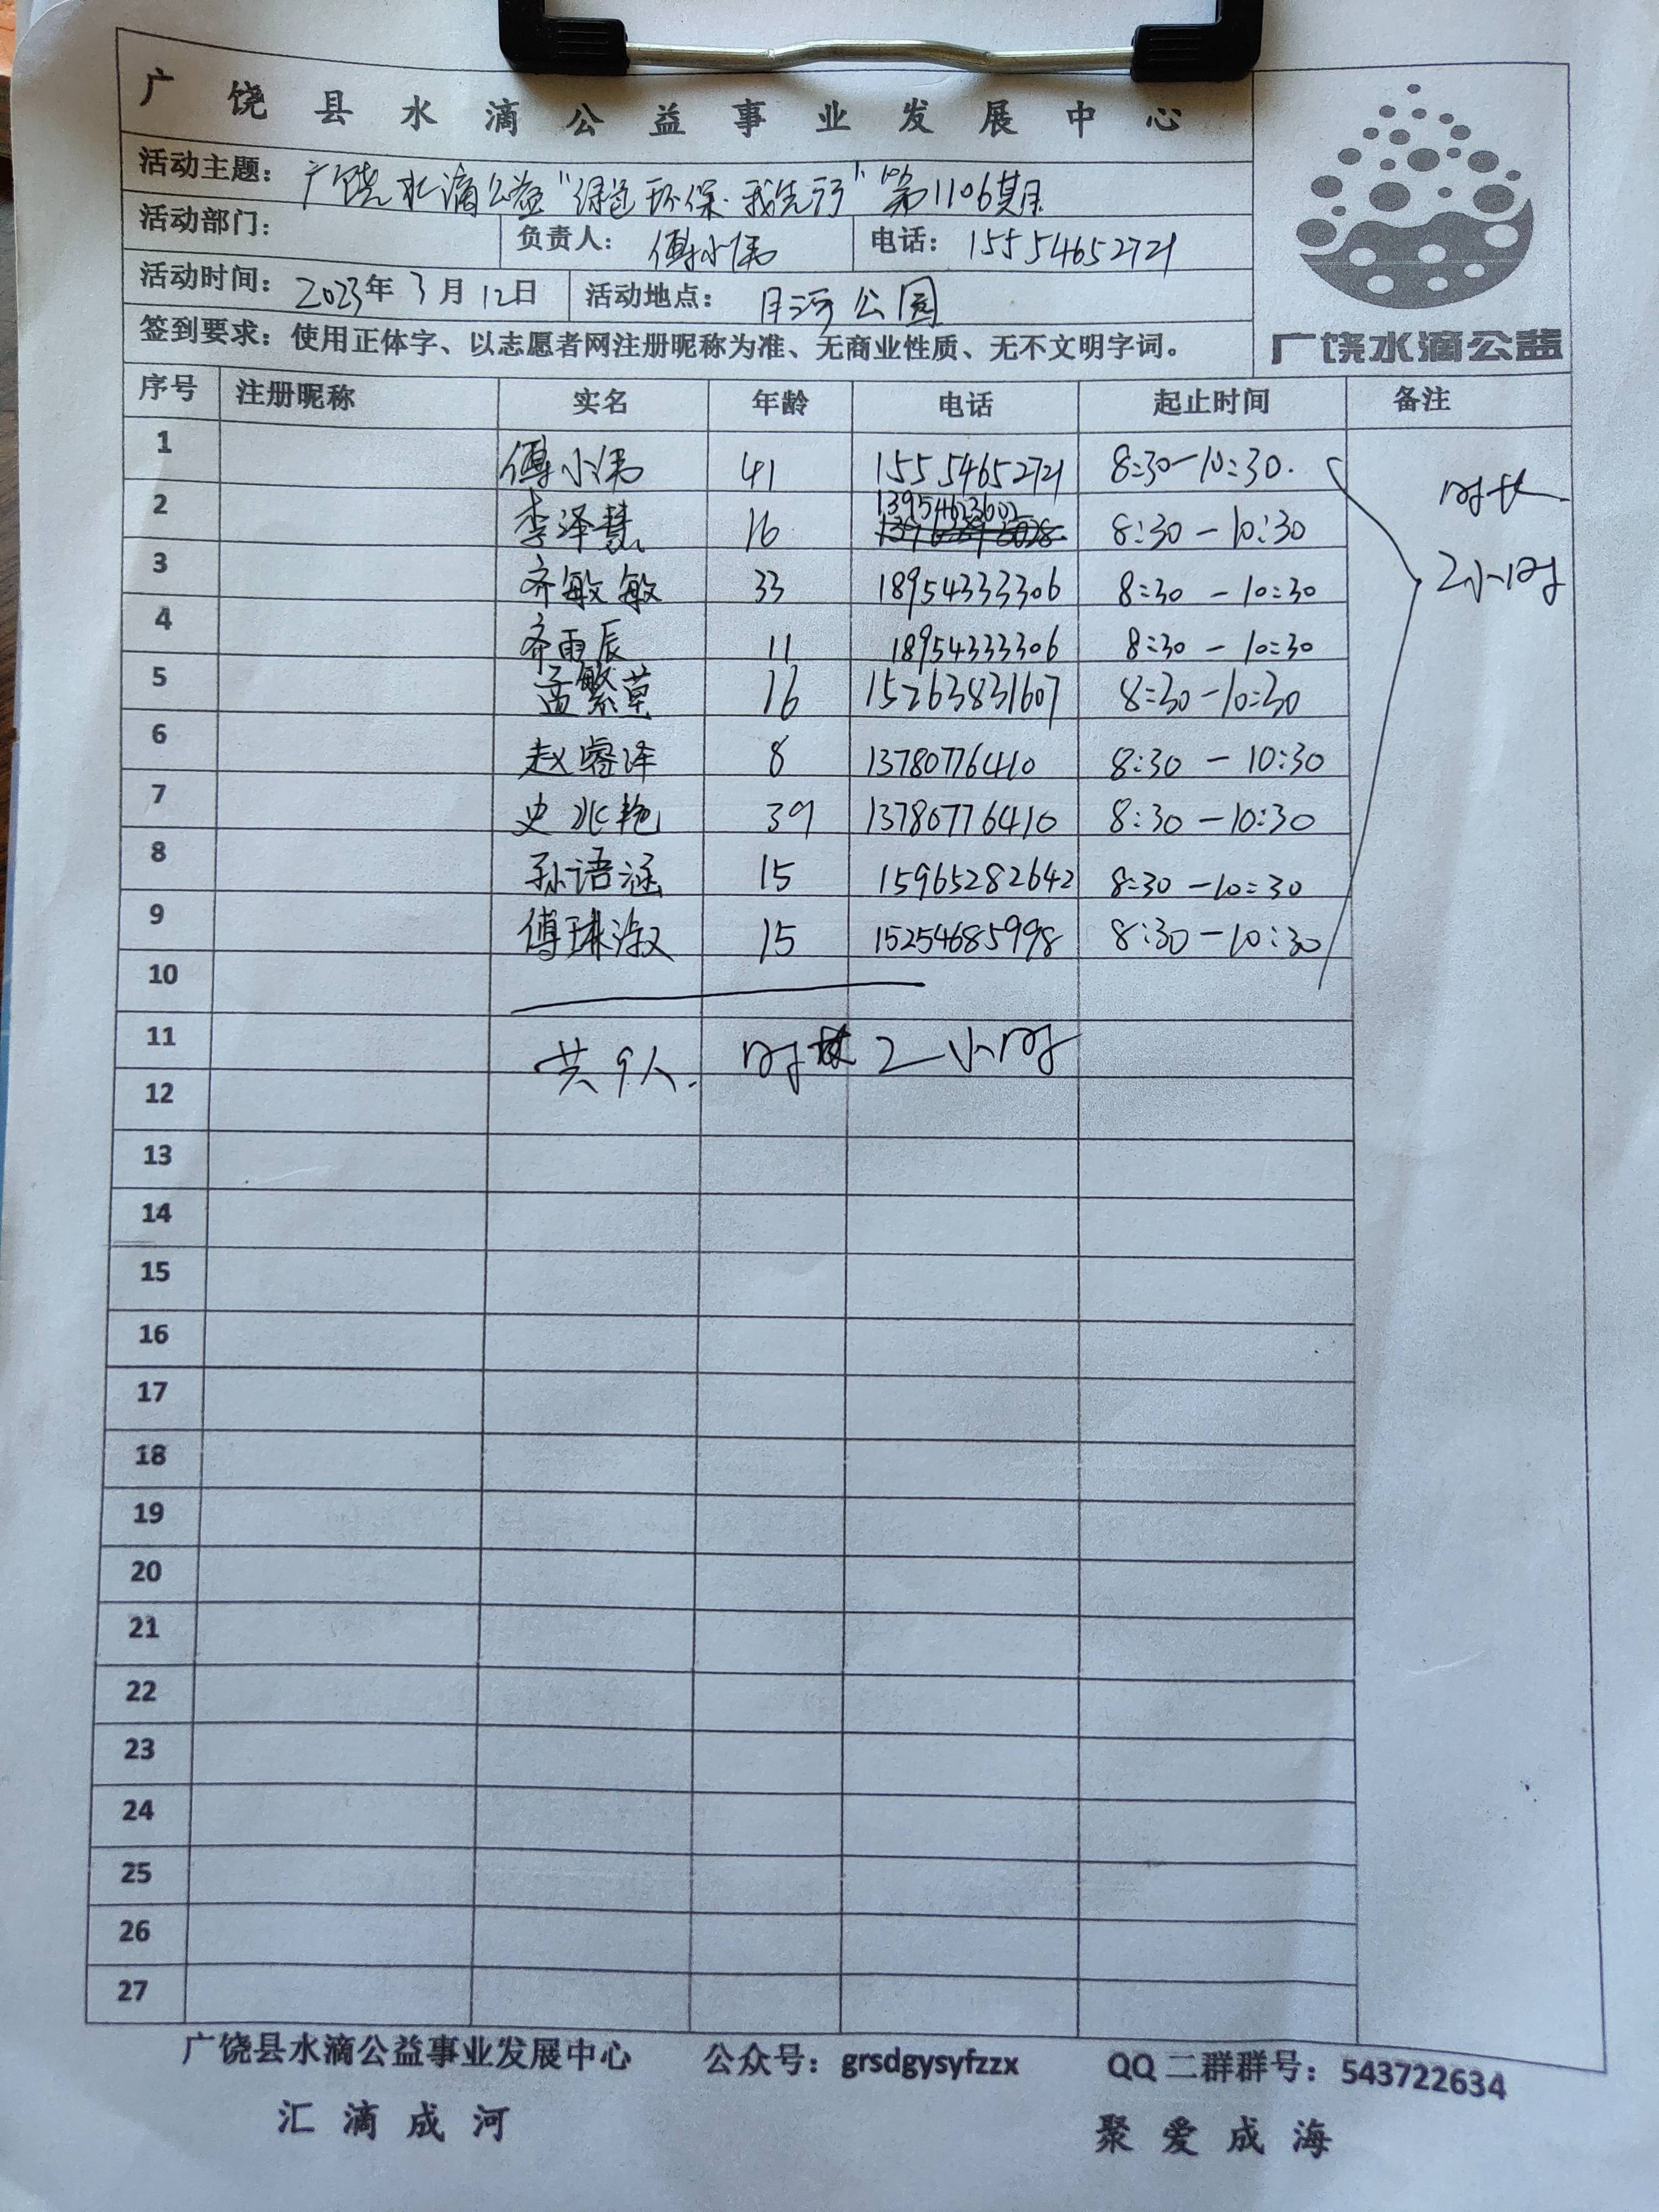 广饶县水滴公益事业发展中心
活动主题：广饶水滴公益"绿色环保·我先行"第1106期
活动部门： 负责人：傅小伟 电话：15554652721
活动时间：2023年3月12日 活动地点：月河公园
签到要求：使用正体字、以志愿者网注册昵称为准、无商业性质、无不文明字词。
广饶水滴公益
序号 注册昵称 实名 年龄 电话 起止时间 备注
1 傅小伟 41 15554652721 8:30-10:30. 时长
2 李泽慧 16 13954623602 8:30-10:30 2小时
3 齐敏敏 33 18954333306 8:30-10:30
4 齐雨辰 11 18954333306 8:30-10:30
5 孟繁草 16 15263831607 8:30-10:30
6 赵睿泽 8 13780776410 8:30-10:30
7 史兆艳 39 13780776410 8:30-10:30
8 孙语涵 15 15965282642 8:30-10:30
9 傅琳淑 15 15254685998 8:30-10:30
10
11 共9人. 时长2小时
12
13
14
15
16
17
18
19
20
21
22
23
24
25
26
27
广饶县水滴公益事业发展中心 公众号：grsdgysyfzzx QQ二群群号：543722634
汇滴成河 聚爱成海